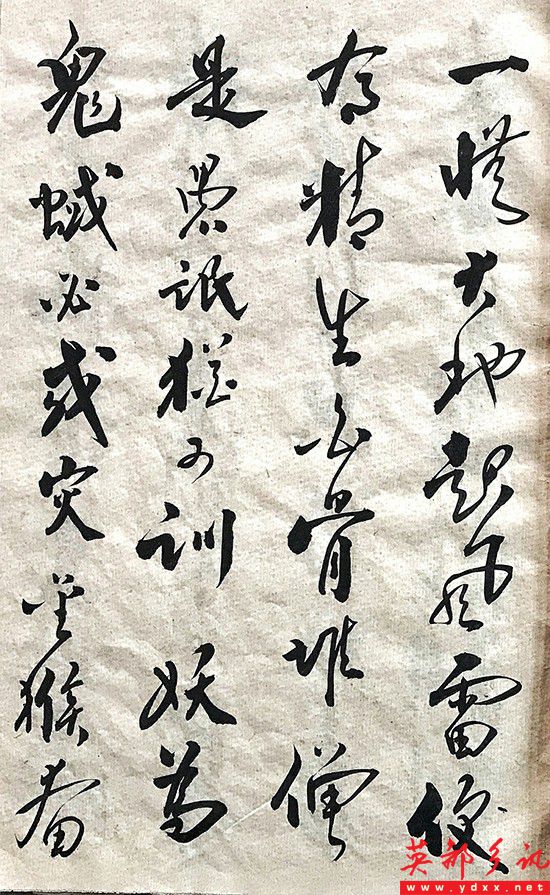 一從大地起風雷便
有精生白骨堆僧
是愚氓猶可訓妖為
鬼蜮必成灾金猴奮
英都乡讯
www.ydxx.net